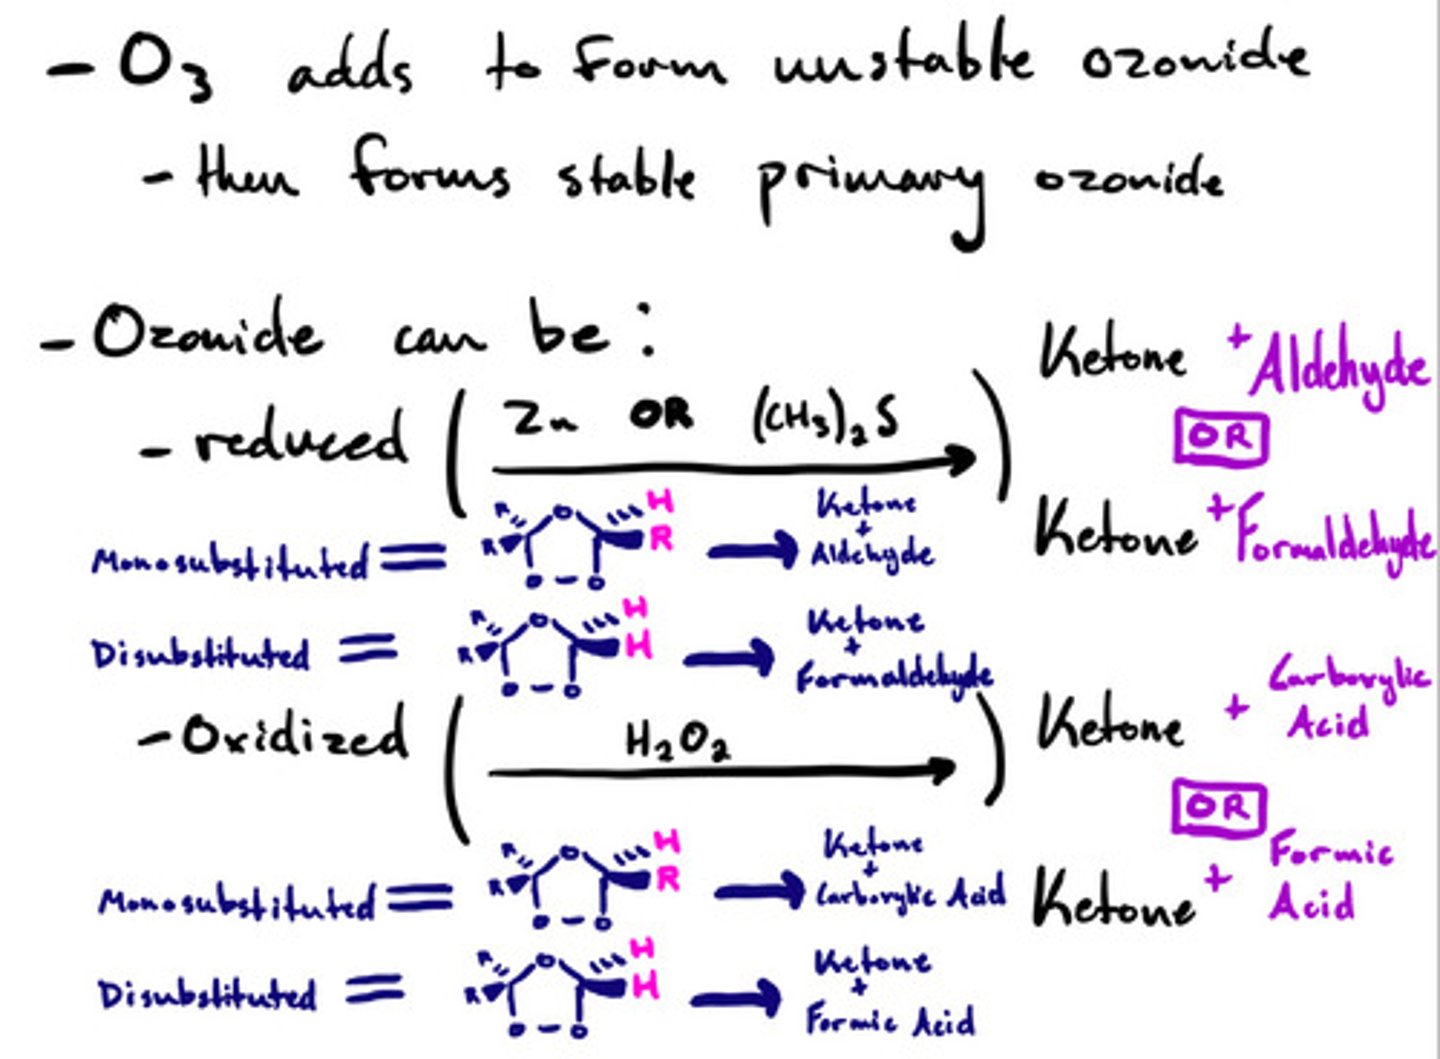 - O₃ adds to form unstable ozonide
- then forms stable primary ozonide
- Ozonide can be:
- reduced ( Zn OR (CH₃)₂S ) Ketone + Aldehyde
OR
Ketone + Formaldehyde
Monosubstituted = R R O O - O H R → Ketone + Aldehyde
Disubstituted = R R O O - O H H → Ketone + Formaldehyde
- Oxidized ( H₂O₂ ) Ketone + Carboxylic Acid
OR
Ketone + Formic Acid
Monosubstituted = R R O O - O H R → Ketone + Carboxylic Acid
Disubstituted = R R O O - O H H → Ketone + Formic Acid